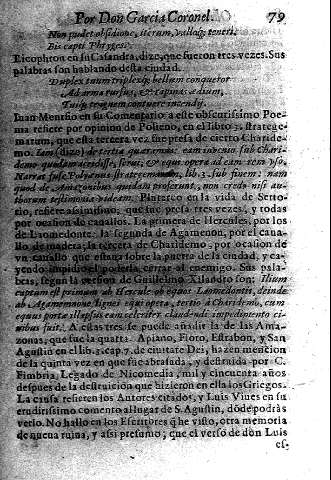 Por Don Garcia Coronel. 79
Non pudet obsidione, iterum, vallóq; teneri,
Bis capti Phryges?
Licophron en su Casandra, dize, que fueron tres vezes. Sus
palabras son hablando desta ciudad.
Duplex tuùm triplexq; bellum conquetor
Ad arma rursus, & rapinas ædium,
Tuisq; te ignem contuere incendij.
Iuan Meursio en su Comentario à este obscurissimo Poe-
ma refiere por opinion de Polieno, en el libro 3. stratege-
matum, que esta tercera vez fue presa de cierto Charide-
mo. Iam (dize) de tertia quæramus, eam autem sub Chari-
demo quodam accidisse, servi, & equi opera ad eam rem vso,
Narrat suse Polyænus stratagematum, lib. 3. sub finem: nam
quod de Amazonibus quidam proferunt, non credo nisi au-
thorum testimonia videam. Plutarco en la vida de Serto-
rio, refiere assimismo, que fue presa tres vezes, y todas
por ocasion de cauallos. La primera de Hercules, por los
de Laomedonte: la segunda de Agamenon, por el caua-
llo de madera; la tercera de Charidemo, por ocasion de
vn cauallo que estaua sobre la puerta de la ciudad, y ca-
yendo impidio el poderla cerrar al enemigo. Sus pala-
bras, segun la version de Guillelmo Xilandro son: Ilium
captum est primùm ab Hercule ob equos Laomedontis, deinde
ab Agamemnone lignei equi opera, tertiò à Charidemo, cum
equus portæ illapsus eam celeriter claudende impedimento ci-
uibus fuit. A estas tres se puede añadir la de las Ama-
zonas, que fue la quarta. Apiano, Floro, Estrabon, y San
Agustin en el lib. 3. cap. 7. de ciuitate Dei, hazen mencion
de la quinta vez en que fue abrasada, y destruida por C.
Fimbria, Legado de Nicomedia, mil y cincuenta años
despues de la destruicion que hizieron en ella los Griegos.
La causa refieren los Autores citados, y Luis Viues en su
eruditissimo comento al lugar de S. Agustin, dõde podràs
verlo. No hallo en los Escritores q̃ he visto, otra memoria
de nueua ruina, y assi presumo, que el verso de don Luis
es-